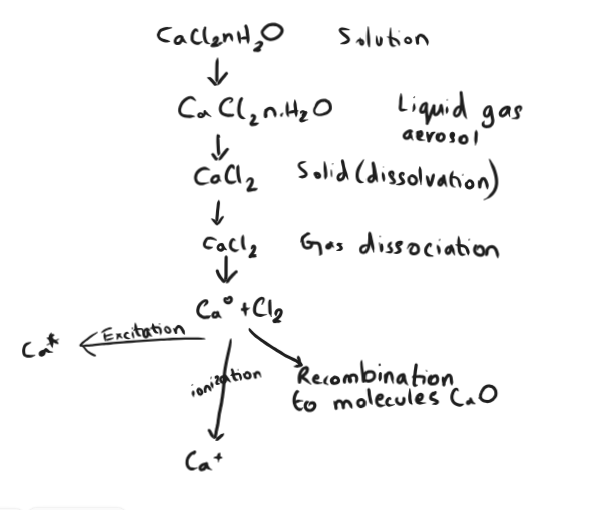 CaCl₂nH₂O Solution
CaCl₂n.H₂O Liquid gas
aerosol
CaCl₂ Solid (dissolvation)
CaCl₂ Gas dissociation
Ca⁰ + Cl₂
Ca* Excitation
ionization Recombination
to molecules CaO
Ca⁺